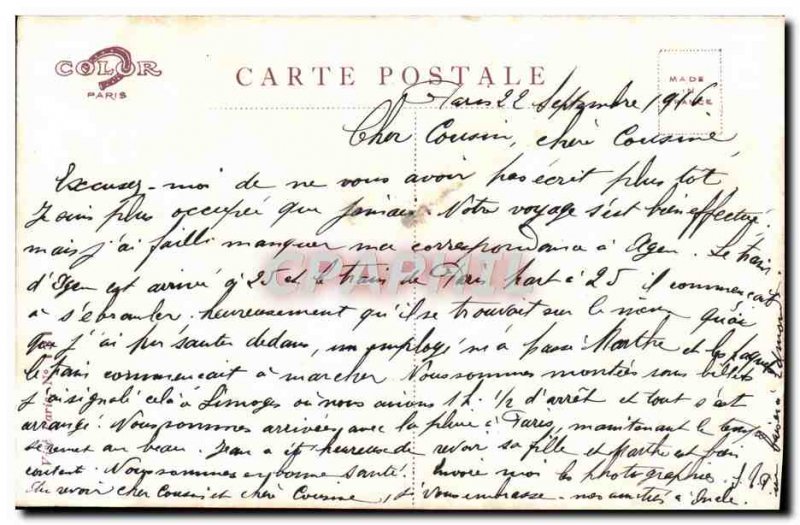 COLOR
PARIS
CARTE POSTALE
MADE
IN
FRANCE
Paris 22 Septembre 1916
Cher Cousin, chère Cousine,
Excusez-moi de ne vous avoir pas écrit plus tot
Je suis plus occupée que jamais. Notre voyage s'est bien effectué
mais j'ai failli manquer ma correspondance à Agen. Le train
d'Agen est arrivé à 25 et le train de Paris part à 25 il commençait
à s'ébranler. heureusement qu'il se trouvait sur le même quai
que j'ai pu sauter dedans, un employé m'a passé Marthe et les paquets
le train commencait à marcher. Nous sommes montées sans billets
j'ai signalé celà à Limoges où nous avions 1h 1/2 d'arrêt et tout s'est
arrangé. Nous sommes arrivées avec la pluie à Paris, maintenant le temps
se remet au beau. Jean a été heureux de revoir sa fille et Marthe est bien
contente. Nous sommes en bonne santé. Envoie moi les photographies
Au revoir cher Cousin et chère Cousine, je vous embrasse - nos amitiés à Oncle.
CPARAMA